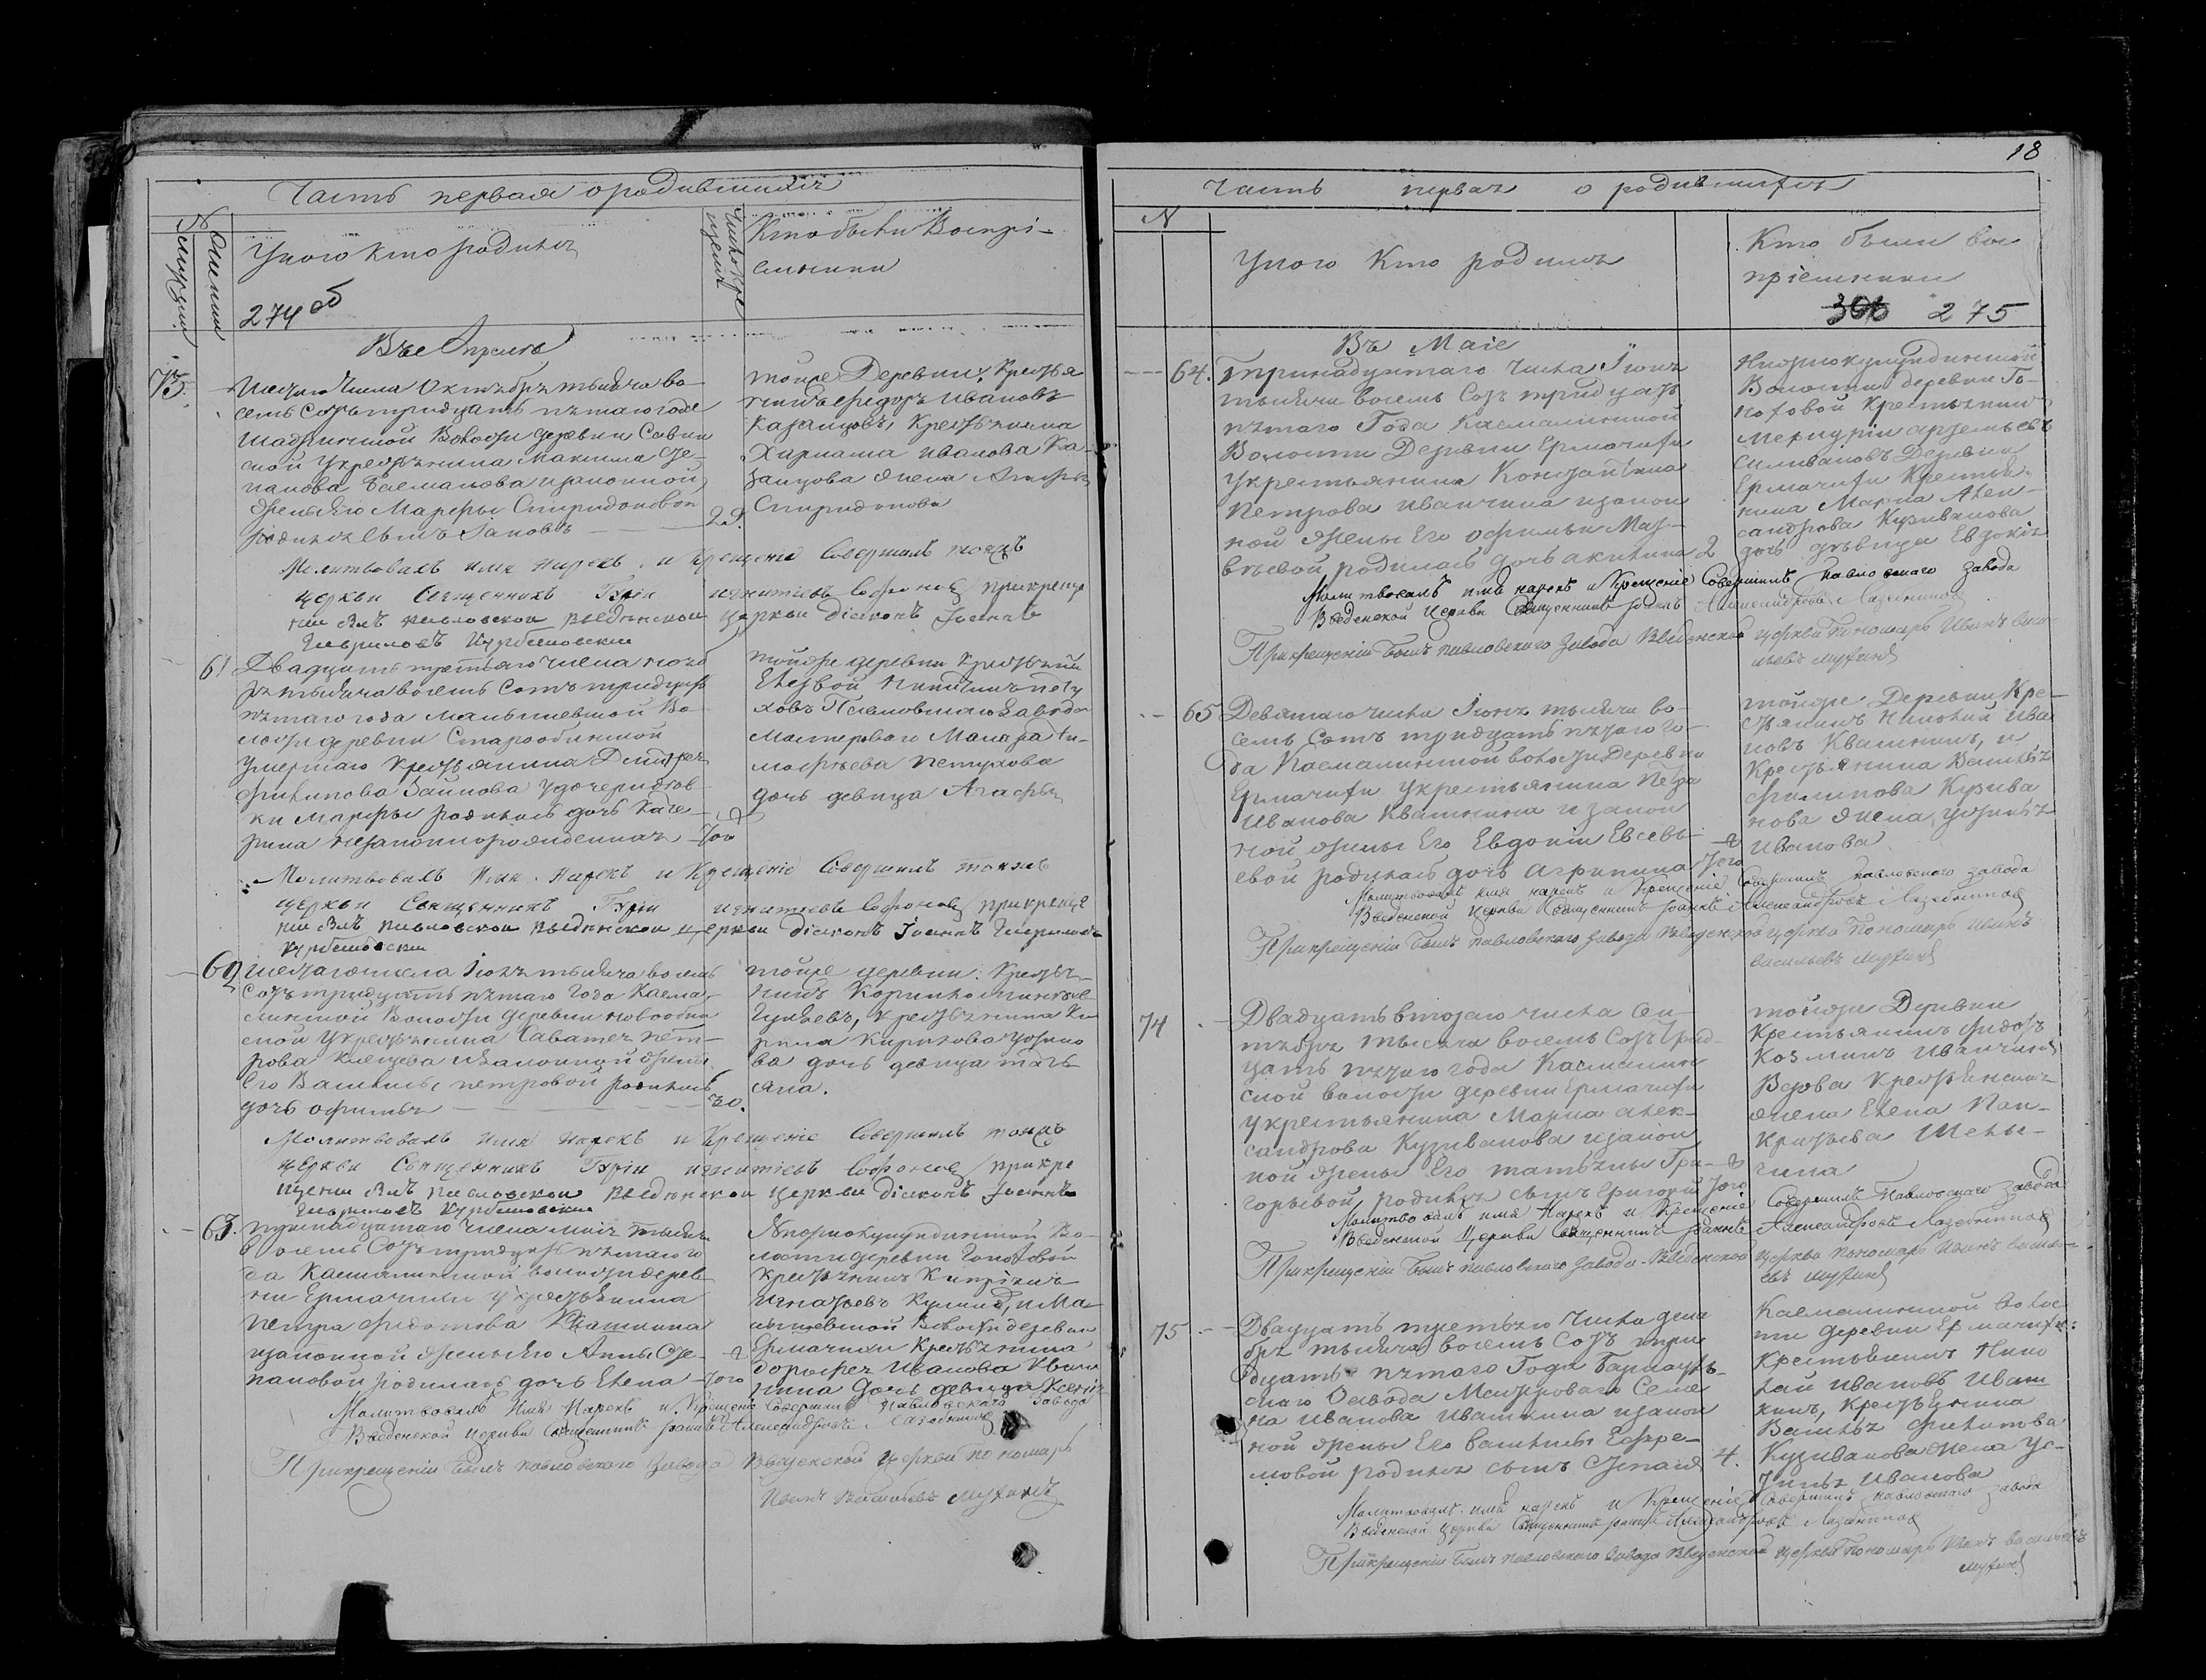 Часть первая о родившихся
N
Мужчинъ
Женщинъ
У кого кто родился
Число крещенія
Кто были Воспрі-
емники
274 об
Въ Апрель
73.
Шестаго Числа Октября тысяча во-
семь Сотъ тридцать пятаго года
Шадринской Волости деревни
у крестьянина Максима Сте-
панова изаконной
жены Его Марфы Спиридоновой
родился Сынъ
2 д.
тойже Деревни Крестья
нинъ Федоръ Ивановъ
Казанцовъ, Крестьянина
Иванова Ка-
занцова жена
Спиридонова
Молитвовалъ имя нарекъ и Крещеніе Совершилъ тояжъ
церкви Священникъ Гурій игнатіевъ прикреще
ніи былъ павловской введенской церкви діяконъ Іоаннъ
Гавриловъ
61
Двадцать третьяго числа нояб
ря тысяча восемь Сотъ тридцать
пятаго года Малышевской Во-
лости деревни Старообинской
умершаго Крестьянина Дмитрея
филипова удочери дѣв
ки Марфы родилась дочь Кате-
рина незаконнорожденная
тойже деревни Крестьянинъ
Павловскаго Завода
Мастероваго Макара Ти-
мофѣева Петухова
дочь девица Агафья
Молитвовалъ Имя Нарекъ и Крещеніе Совершилъ тояжъ
церкви Священникъ Гурій игнатіевъ прикреще
ніи былъ павловской введенской церкви діяконъ Іоаннъ Гавриловъ
62
шестаго числа Іюня тысяча восемь
Сотъ тридцать пятаго Года Касма-
линской Волости деревни новообин
ской Укрестьянина Саватея пет-
рова Клещева изаконной жены
Его Василисы петровой родилась
дочь офимья
30.
тойже деревни Крестья-
нинъ
Крестьянина Ки
рила Кирилова
ва дочь девица тать
яна.
Молитвовалъ Имя нарекъ и Крещеніе Совершилъ тояжъ
церкви Священникъ Гурій игнатіевъ прикре
щеніи былъ павловской введенской церкви діяконъ Іоаннъ
Гавриловъ
63.
тринадцатаго числа маія тысяча
восемь Сотъ тридцать пятаго го
да Касмалинской волости дерев
ни Ермачихи у крестьянина
петра Федотова Квашнина
изаконной жены Его Анны Сте-
пановой родилась дочь Елена
Нижнокулундинской Во-
лости деревни Гоноховой
крестьянинъ Кипріянъ
Игнатьевъ, и Ма
лышевской Волости деревни
Ермачихи Крестьянина
дорофея Иванова Кваш
нина Дочь девица Ксенія
Молитвовалъ Имя Нарекъ и Крещеніе Совершилъ Павловскаго Завода
Введенской церкви Священникъ Іоаннъ Александровъ
Прикрещеніи былъ павловскаго Завода Введенской церкви пономарь
Иванъ Васильевъ Мухинъ
18
Часть первая о родившихся
N
У кого Кто родился
Кто были вос
пріемники
275
Въ Маіе
64.
тринадцатаго числа Іюня
тысяча восемь Сотъ тридцать
пятаго Года Касмалинской
Волости Деревни Ермачихи
Укрестьянина Константина
Петрова Иванчина изакон
ной жены Его офимьи Мат-
вѣевой родилась дочь акилина
2
Нижнокулундинской
Волости деревни Го-
ноховой Крестьянинъ
Меркурій артемьевъ
Селивановъ Деревни
Ермачихи Крестья
нина Марка Алек-
сандрова Кузиванова
дочь дѣвица Евдокія
Молитвовалъ имя нарекъ и Крещеніе Совершилъ Павловскаго завода
Введенской Церкви Священникъ Іоаннъ Александровъ
Прикрещеніи былъ павловскаго Завода Введенской церкви Пономарь Иванъ Васи-
льевъ мухинъ
65
Девятаго числа Іюня тысяча во-
семь Сотъ тридцать пятаго го-
да Касмалинской волости Деревни
Ермачихи Укрестьянина Петра
Иванова Квашнина изакон
ной жены Его Евдокіи Евсевь-
евой родилась дочь агрипина
тойже Деревни Кре-
стьянинъ Николай Ива
новъ Квашнинъ, и
Крестьянина Василья
Филипова Кузива
нова жена устинья
Иванова
Молитвовалъ имя нарекъ и Крещеніе Совершилъ павловскаго завода
Введенской Церкви Священникъ Іоаннъ Александровъ
Прикрещеніи былъ павловскаго Завода Введенской церкви Пономарь Иванъ
Васильевъ Мухинъ
74
Двадцать втораго числа Сен
тября тысяча восемь Сотъ трид-
цать пятаго года Касмалин
ской волости деревни Ермачихи
укрестьянина Марка алек-
сандрова Кузиванова изакон
ной жены Его татьяны Гри-
горьевой родился сынъ Григорій
тойже Деревни
Крестьянинъ Федоръ
Козминъ Иванчинъ
Вдова Крестьянская
жена Елена Пан-
кратьева Шелы-
гина
Молитвовалъ имя Нарекъ и Крещеніе Совершилъ Павловскаго завода
Введенской Церкви Священникъ Іоаннъ Александровъ
Прикрещеніи былъ павловскаго Завода Введенской церкви пономарь Иванъ Василь-
евъ Мухинъ
75
Двадцать третьяго числа дека
бря тысяча восемь Сотъ три
дцать пятаго Года Барнауль-
скаго Завода Мастероваго Семе
на Иванова Ивашкина изакон
ной жены Его Василисы Ефре-
мовой родился сынъ Степанъ
4.
Касмалинской волос
ти деревни Ермачихи
Крестьянинъ Нико
лай Ивановъ Иваш
кинъ, Крестьянина
Василья Филипова
Кузиванова жена Ус-
тинья Иванова
Молитвовалъ имя нарекъ и Крещеніе Совершилъ павловскаго завода
Введенской Церкви Священникъ Іоаннъ Александровъ
Прикрещеніи былъ павловскаго Завода Введенской церкви Пономарь Иванъ васильевъ
Мухинъ